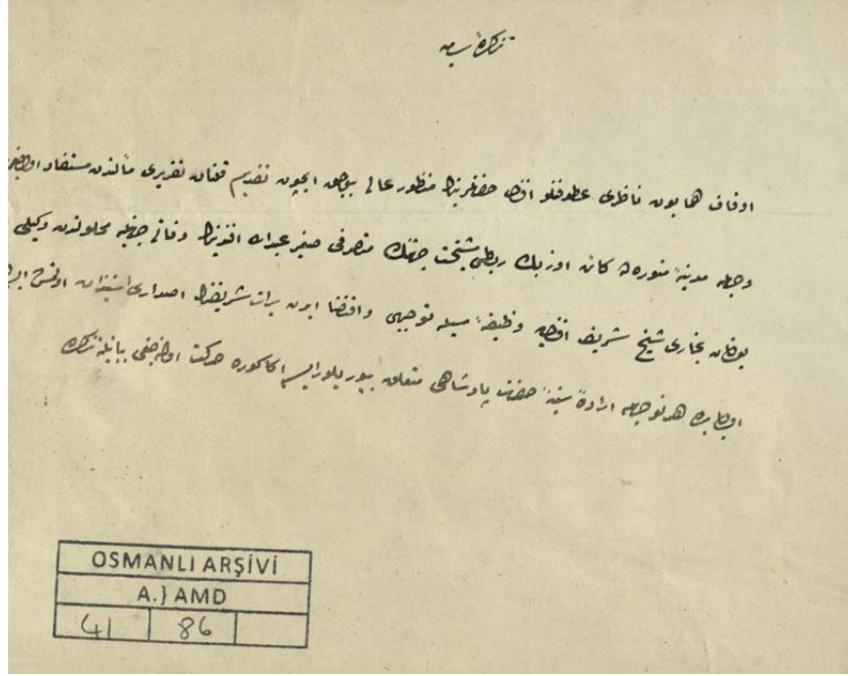 تذكرۀ سامیه
اوقاف همايون ناظری عطوفتلو افندی حضرتلرينك منظور عالی بيورلمق ايچون تقديم قلنان تقريری مآلندن مستفاد اولديغی
وجهله مدينۀ منوره ده كائن اوزبك رباطی مشيخت جهتنك متصرفی صغير عبدالله افندينك وفاتی جهتيله محلولندن وكيلی
بولنان بخاری شيخ شريف افندی يه وظيفۀ سيله توجيهی واقتضا ايدن برات شريفنك اصداری استيذان اولنمش
اولمغله هر نوجهله ارادۀ سنيۀ حضرت پادشاهی متعلق بيوريلور ايسه اكا كوره حركت اولنه جغی بيانيله تذكره
OSMANLI ARŞİVİ
A.} AMD
41 86